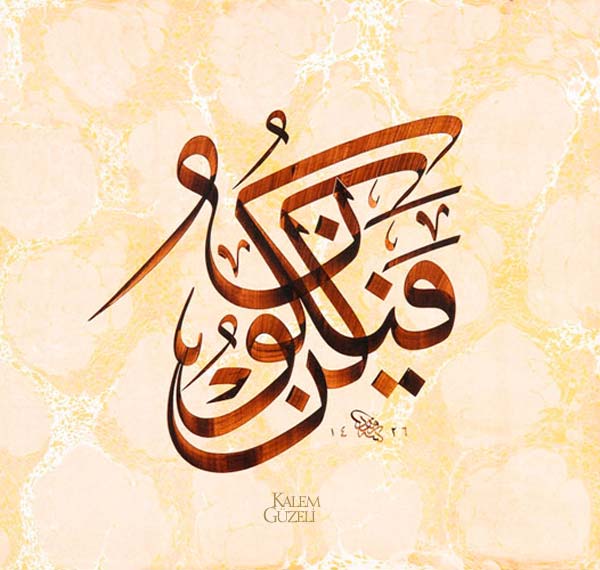 كُنْ فَيَكُونُ
١٤٢٦
KALEM
GÜZELİ